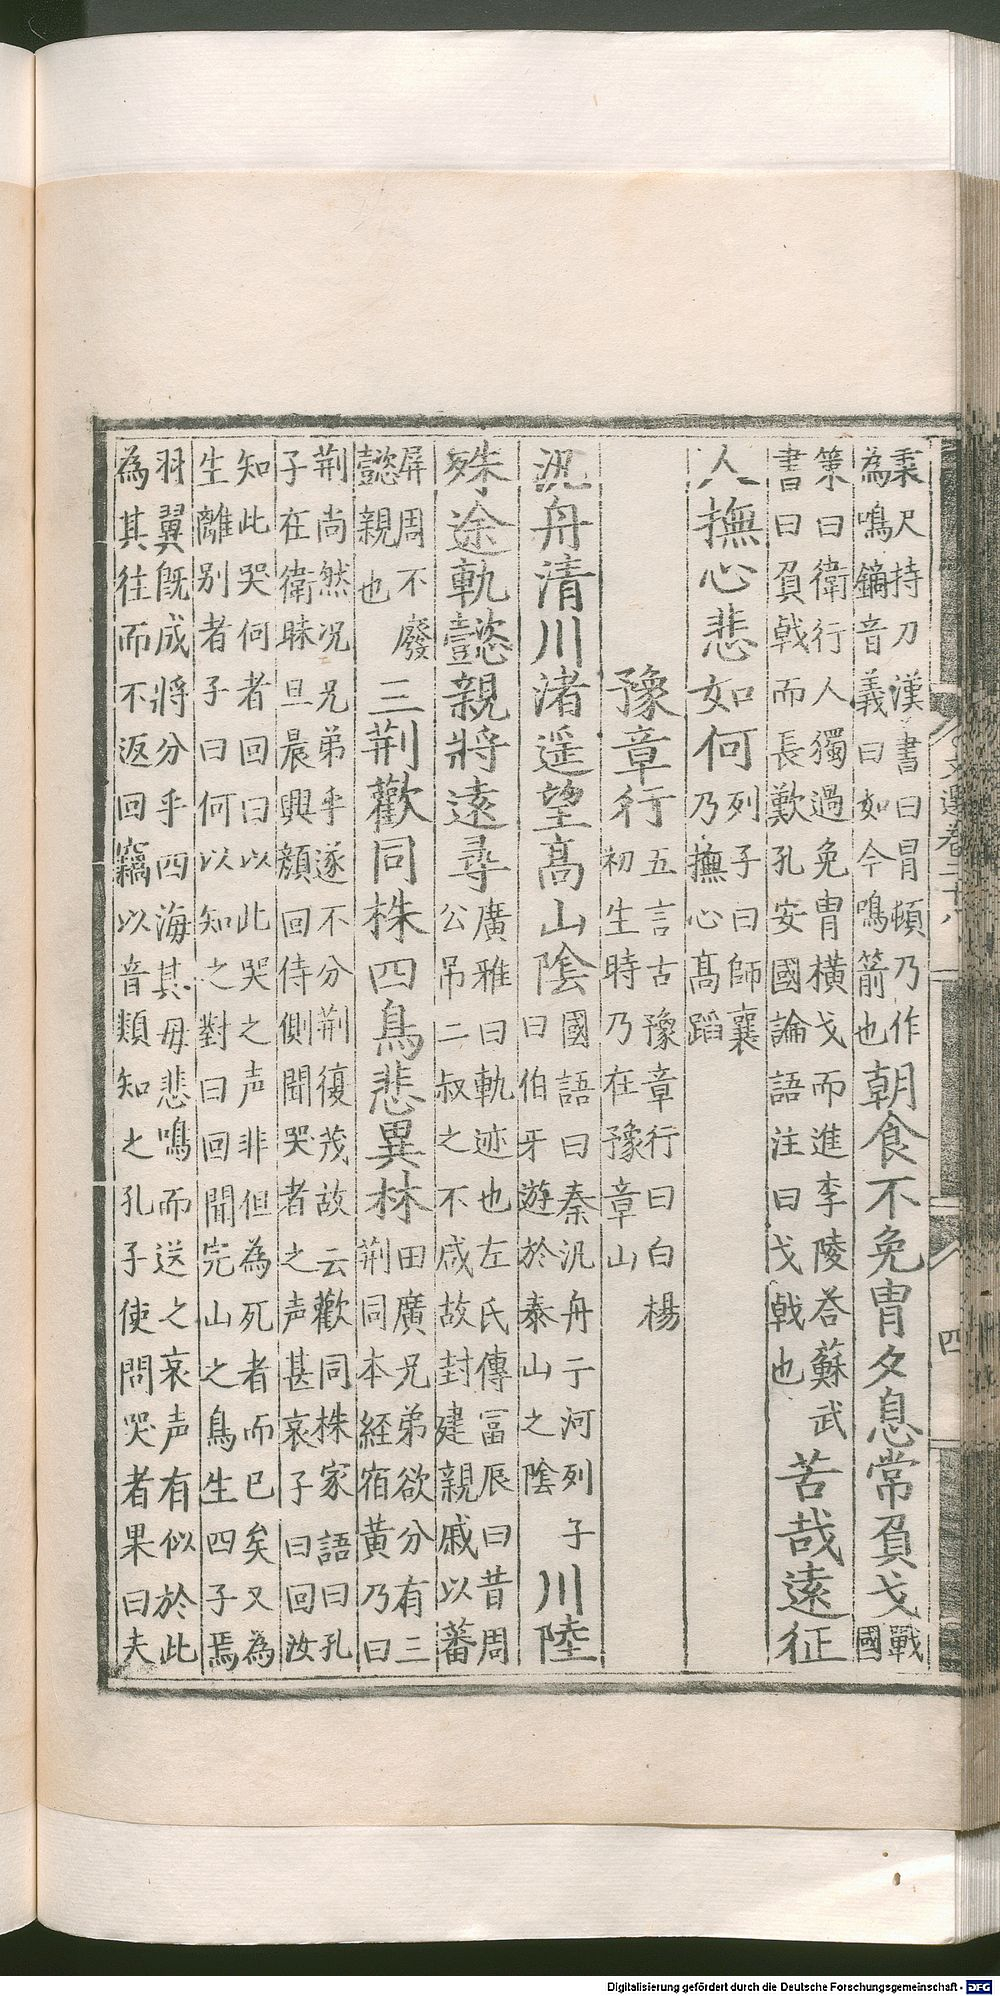 桼尺持刀漢書曰冒頓乃作
為鳴鏑音義曰如今鳴箭也
朝食不免胄夕息常負戈
戰
國
策曰衛行人獨過免胄橫戈而進李陵荅蘇武
書曰負戟而長歎孔安國論語注曰戈戟也
苦哉遠征
人撫心悲如何
列子曰師襄
乃撫心高蹈
豫章行
五言古豫章行曰白楊
初生時乃在豫章山
汎舟清川渚遥望高山陰
國語曰秦汎舟于河列子
曰伯牙遊於泰山之陰
川陸
殊途軌懿親將遠尋
廣雅曰軌迹也左氏傳冨辰曰昔周
公吊二叔之不咸故封建親戚以蕃
屏周不廢
懿親也
三荆歡同株四鳥悲異林
田廣兄弟欲分有三
荆同本経宿黄乃曰
荆尚然况兄弟乎遂不分荆復茂故云歡同株家語曰孔
子在衛昧旦晨興顔回侍側聞哭者之声甚哀子曰回汝
知此哭何者回曰以此哭之声非但為死者而已矣又為
生離别者子曰何以知之對曰回聞完山之鳥生四子焉
羽翼既成將分乎四海其母悲鳴而送之哀声有似於此
為其往而不返回竊以音類知之孔子使問哭者果曰夫
文選卷二十八
四
Digitalisierung gefördert durch die Deutsche Forschungsgemeinschaft - DFG